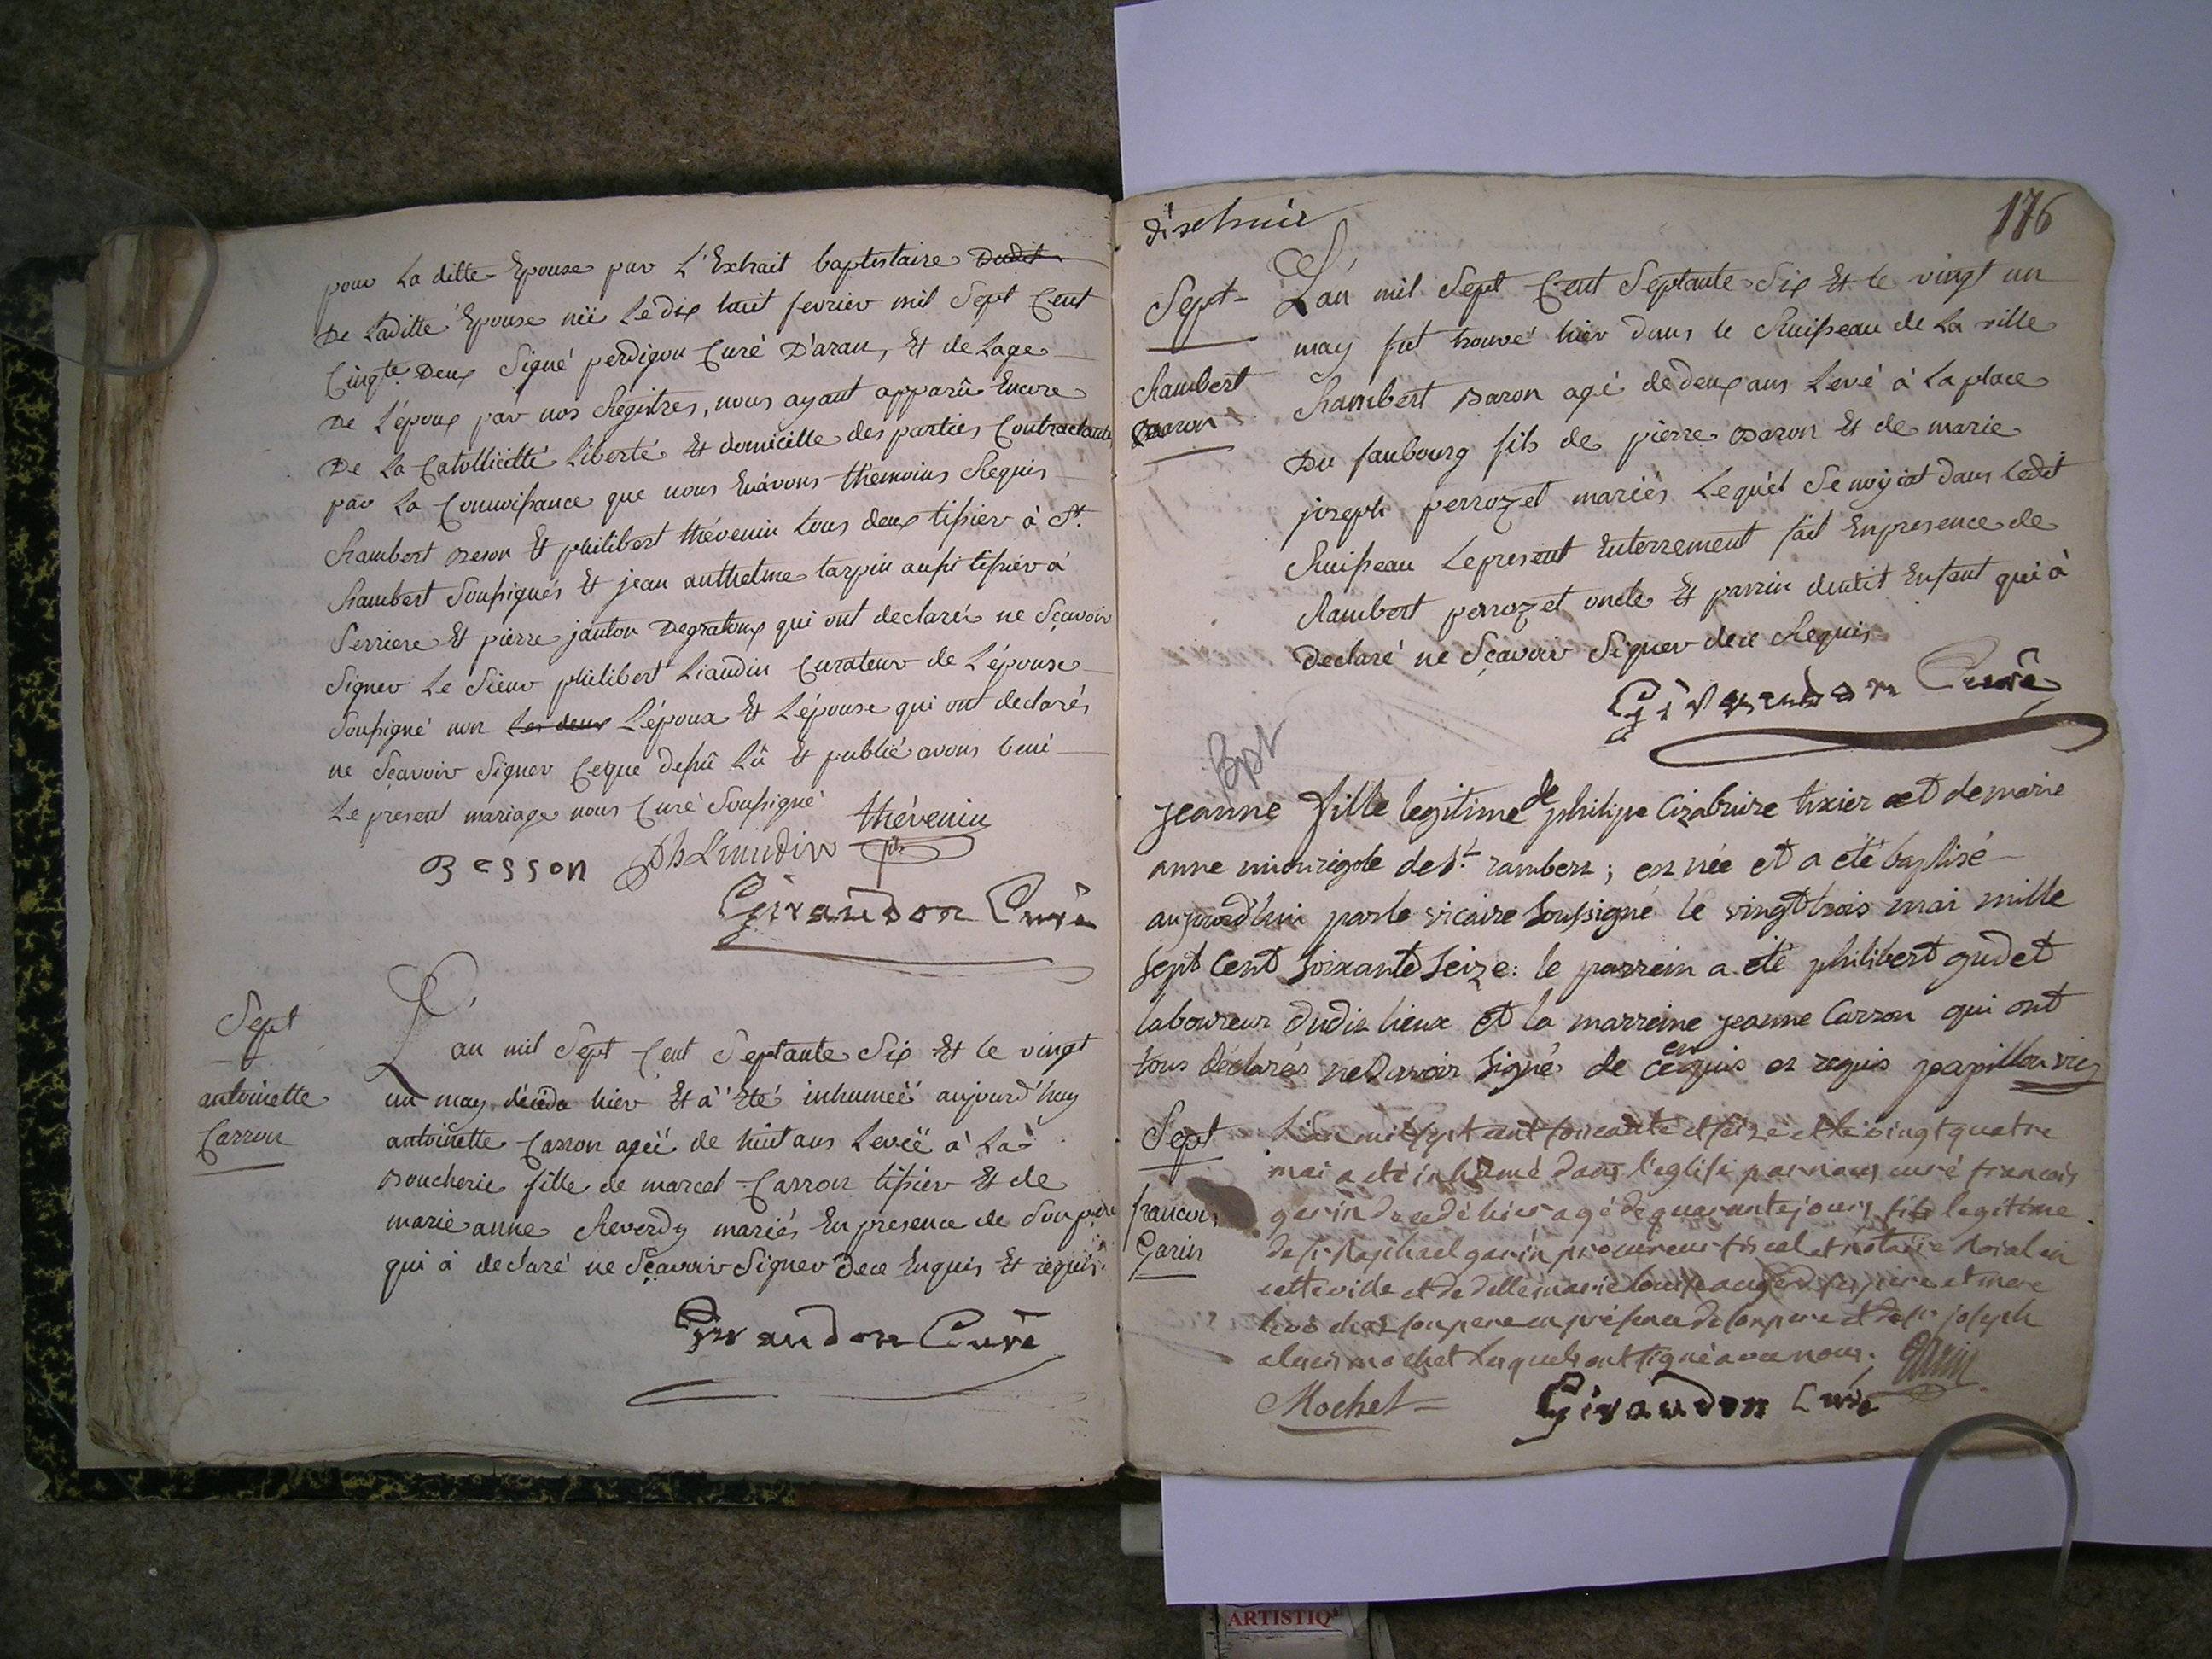 pour La ditte Epouse par L'Extrait baptistaire Dudit
De Laditte Epouse née Le dix huit fevrier mil Sept Cent
Cinqte. Deux Signé perdigou Curé D'aran, Et de Lage
De L'époux par nos Registres, nous ayant apparû Encore
De La Catollicitté Liberté Et domicille des parties Contractante
par La Connoissance que nous En avons themoins Requis
Rambert Beson Et philibert thévenin tous deux tissier à St.
Rambert Soussignés Et jean anthelme tarpin aussi tissier à
Serriere Et pierre janton Degratoux qui ont declarés ne Sçavoir
Signer Le Sieur philibert Liaudin Curateur de L'épouse
Soussigné non Les deux L'époux Et L'épouse qui ont declarés
ne Sçavoir Signer Ceque dessû Lû Et publié avons beni
Le present mariage nous Curé Soussigné
thévenin
Besson Ph Liaudin
Giraudon Curé
Sept
antoinette
Carron
L'an mil Sept Cent Septante Six Et le vingt
un may décéda hier Et à Eté inhumeé aujourd'huy
antoinette Carron ageé de huit ans Leveé à La
Boucherie fille de marcel Carron tissier Et de
marie anne Reverdy mariés En presence de Son pere
qui à declaré ne Sçavoir Signer de ce Enquis Et requis.
Giraudon Curé
dixhuit
176
Sept
Rambert
Baron
L'an mil Sept Cent Septante Six Et le vingt un
may fut trouvé hier dans le Ruisseau de La ville
Rambert Baron agé de deux ans Levé à La place
Du faubourg fils de pierre Baron Et de marie
joseph perrozet mariés Lequel Se noyiat dans ledit
Ruisseau Le present Enterrement fait En presence de
Rambert perrozet oncle Et parrin dudit Enfant qui à
declaré ne Sçavoir Signer de ce Requis
Giraudon Curé
Bpt
jeanne fille legitime de philipe Cizabuire tixier et de marie
anne de St. rambert; est née et a eté baptisé
aujourd'hui par le vicaire soussigné le vingt trois mai mille
sept cent soixante seize: le parrein a eté philibert gudet
laboureur dudit lieux et la marreine jeanne Carron qui ont
tous déclarés ne savoir signé de ce enquis et requis papillon vic
Sept
francois
Garin
L'an mil sept cent soixante et seize et le vingt quatre
mai a été inhumé dans l'eglise par nous curé francois
garin decedé hier agé de quarante jours fils legitime
de sr. Raphael garin procureur fiscal et notaire Roial en
cette ville et de delle marie louise auger ses pere et mere
levé chez son pere en présence de son pere et de sr. joseph
mochet lesquels ont signé avec nous. Garin
Mochet Giraudon Curé
ARTISTIQ